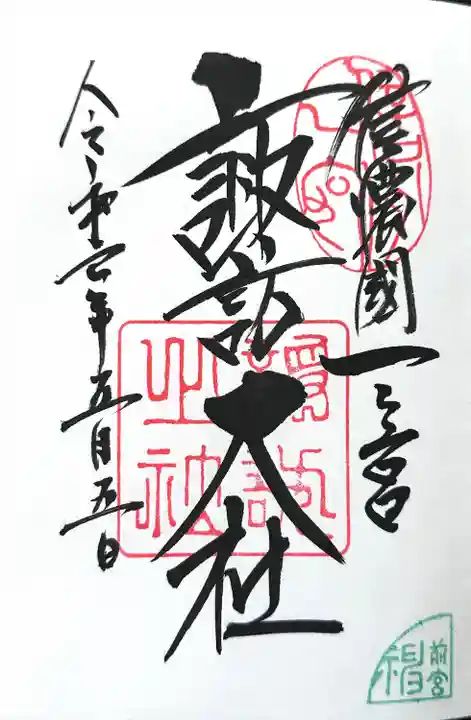 信濃國一之宮
諏訪大社
令和六年五月五日
前宮